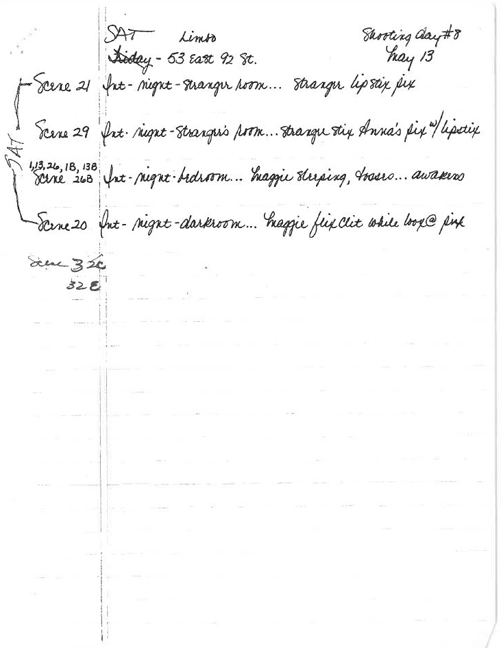 SAT Limbo Shooting Day #8
Friday - 53 East 92 St. May 13
Scene 21 Int - night - Stranger room... Stranger lipstix pix
SAT
Scene 29 Int - night - Stranger's room... Stranger stix Anna's pix w/ lipstix
1, 13, 26, 1B, 13B
Scene 26B Int - night - bedroom... Maggie sleeping, tosses... awakens
Scene 20 Int - night - darkroom... Maggie flix Clit while look@ pix
Scene 32C
32E